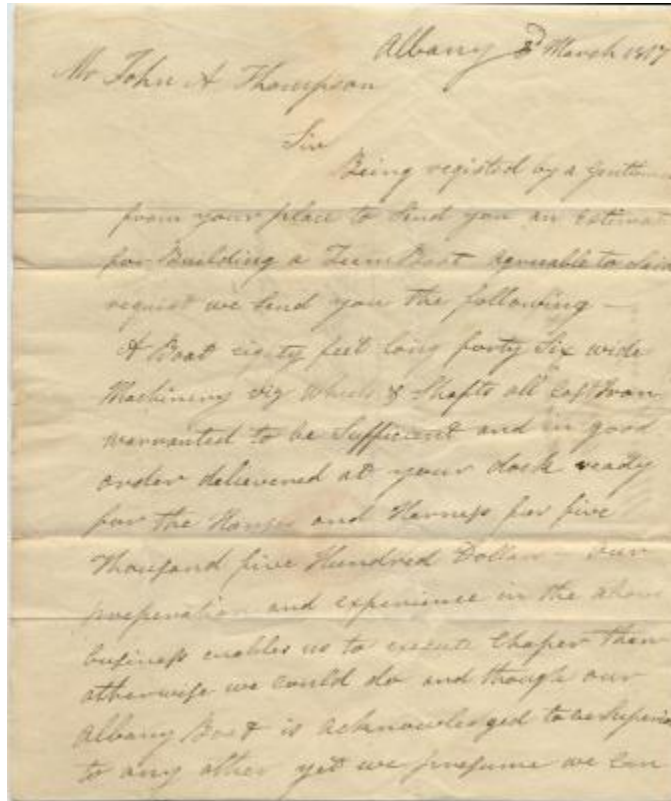 Albany 3d March 1817
Mr John A Thompson
Sir
Being registed by a gentleme
from your place to Send you an Estimat
for Building a Teem Boat agreeable to Said
request we Send you the following —
A Boat eighty feet long forty Six wide
Machinery viz Wheels & Shafts all Cast Iron
warranted to be Sufficient and in good
order delivered at your dock ready
for the Horses and Harness for five
Thousand five Hundred Dollar — Our
preperation and experience in the above
business enables us to execute Cheaper then
otherwise we could do and though our
Albany Boat is acknowledged to be Superio
to any other yet we presume we can